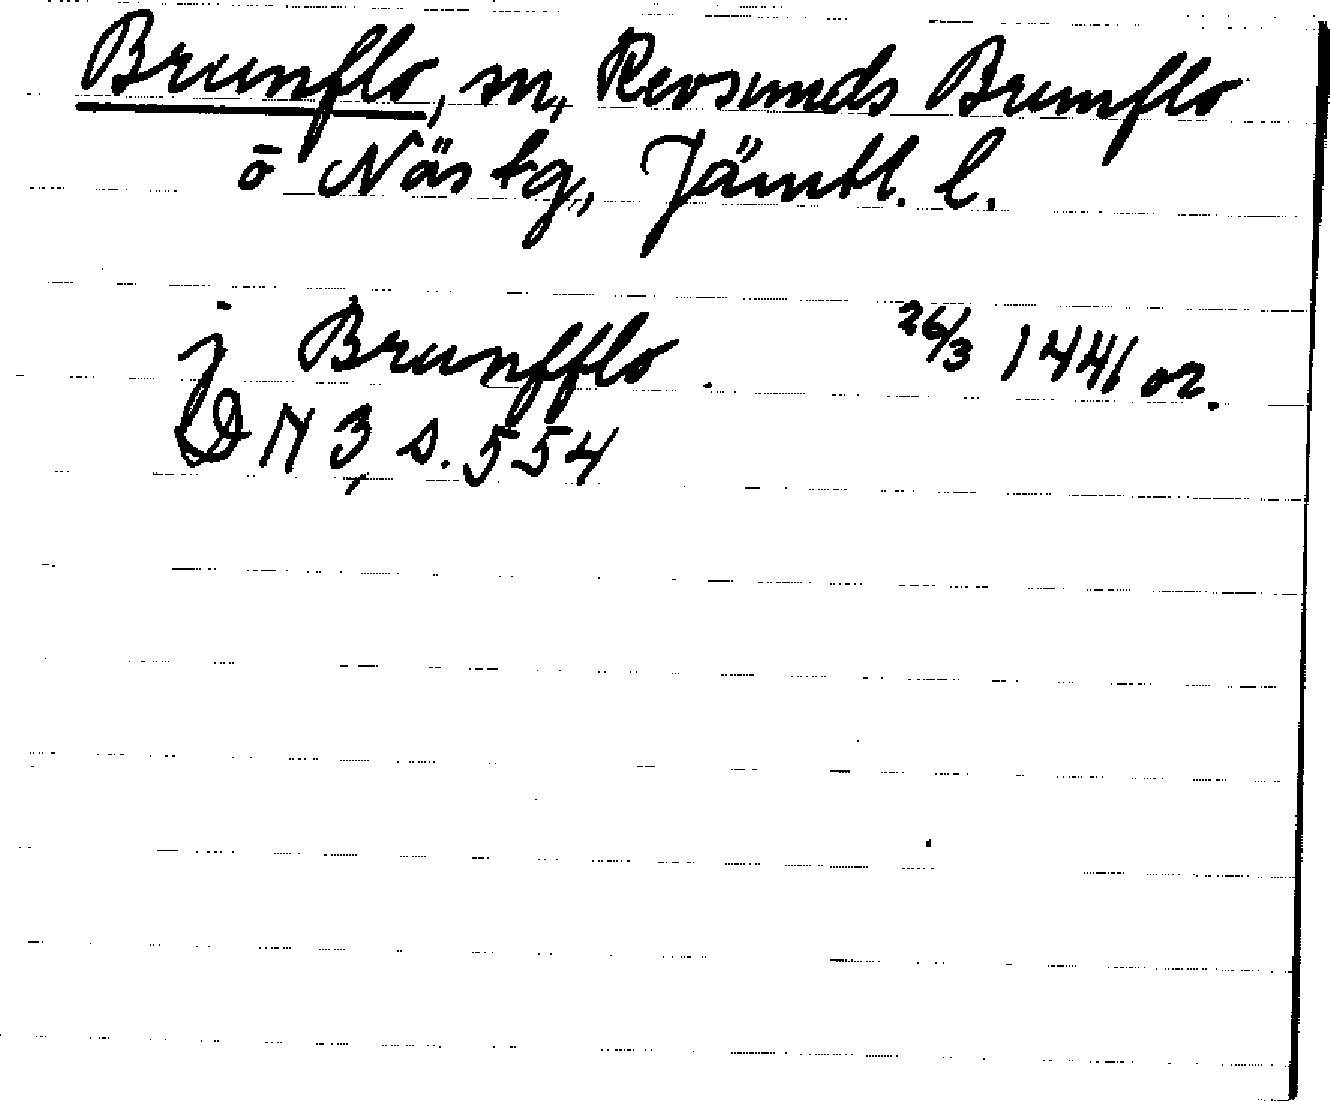 Brunflo, sn, Revsunds Brunflo
ō Näs tg, Jämtl. l.
j Brunfflo . 26/3 1441 or.
DN 3, s. 554